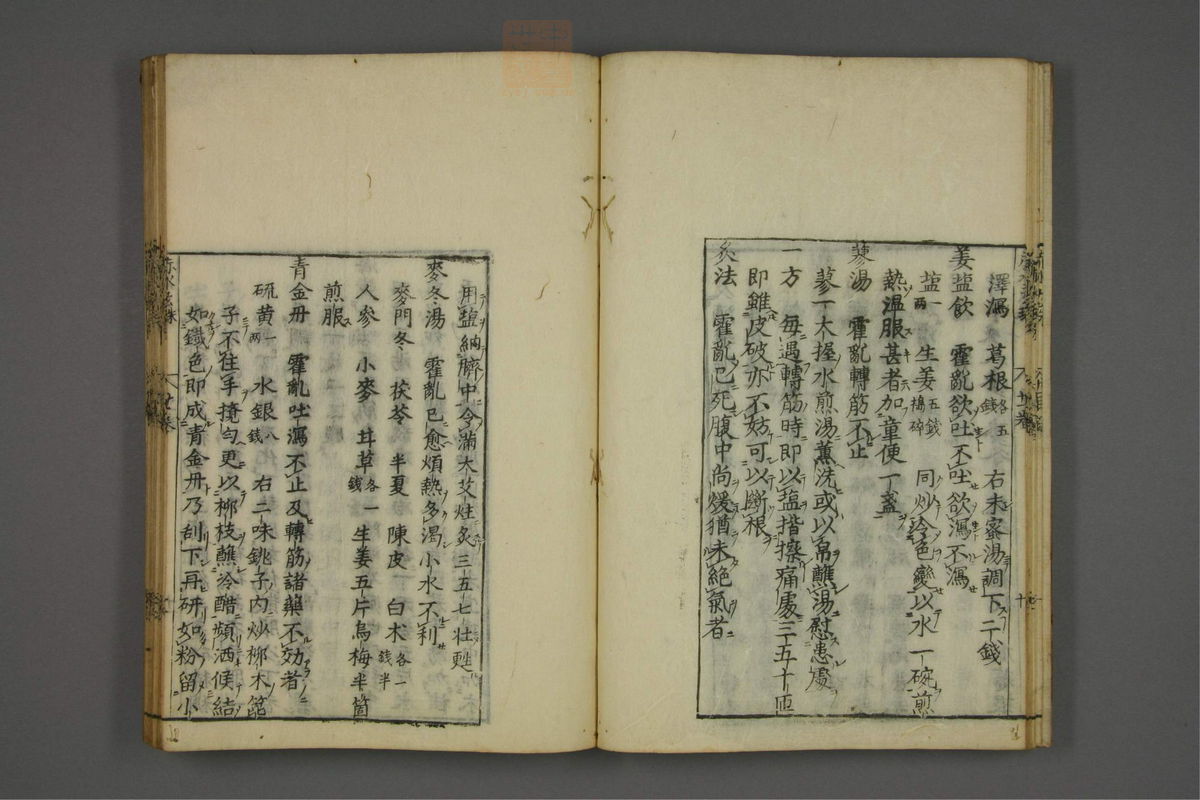 澤瀉 葛根各五錢 右末蜜湯調下二錢
姜塩飲 霍亂欲吐不吐欲瀉不瀉
塩一兩 生姜五錢搗碎 同炒令色變以水一碗煎
熱温服甚者加童便一盞
蓼湯 霍亂轉筋不止
蓼一大握水煎湯薫洗或以帛蘸湯慰患處
一方 毎遇轉筋時即以塩揩擦痛處三五十匝
即雖皮破亦不妨可以斷根
灸法 霍亂已死腹中尚煖猶未絶氣者
用塩納臍中令滿大艾炷灸三五七壮甦
麥冬湯 霍亂已愈煩熱多渇小水不利
麥門冬 茯苓 半夏 陳皮 白朮各一錢半
人參 小麥 甘草各一錢 生姜五片烏梅半箇
煎服
青金丹 霍亂吐瀉不止及轉筋諸藥不効者
硫黄一兩 水銀八錢 右二味銚子内炒柳木篦
子不住手攪匀更以柳枝蘸冷醋頻洒候結
如鐵色即成青金丹乃刮下再研如粉留小